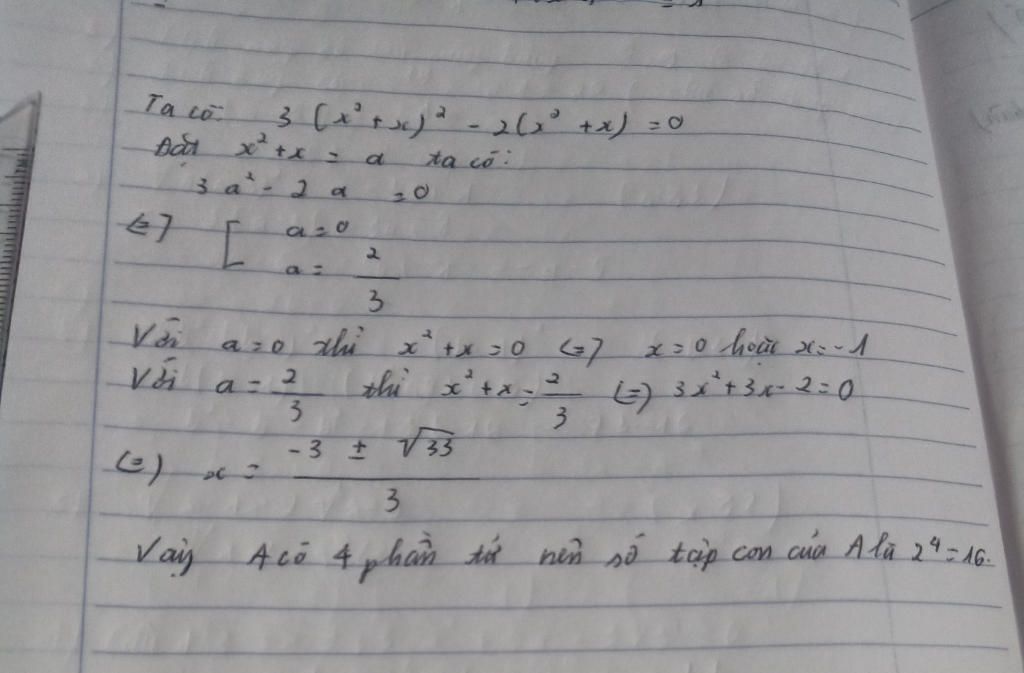 Ta có: 3 (x² + x)² - 2(x² + x) = 0
Đặt x² + x = a ta có:
3 a² - 2 a = 0
(=) [ a = 0
a = 2/3
Với a = 0 thì x² + x = 0 (=) x = 0 hoặc x = -1
Với a = 2/3 thì x² + x = 2/3 (=) 3x² + 3x - 2 = 0
(=) x = (-3 ± √33)/3
Vậy A có 4 phần tử nên số tập con của A là 2⁴ = 16.